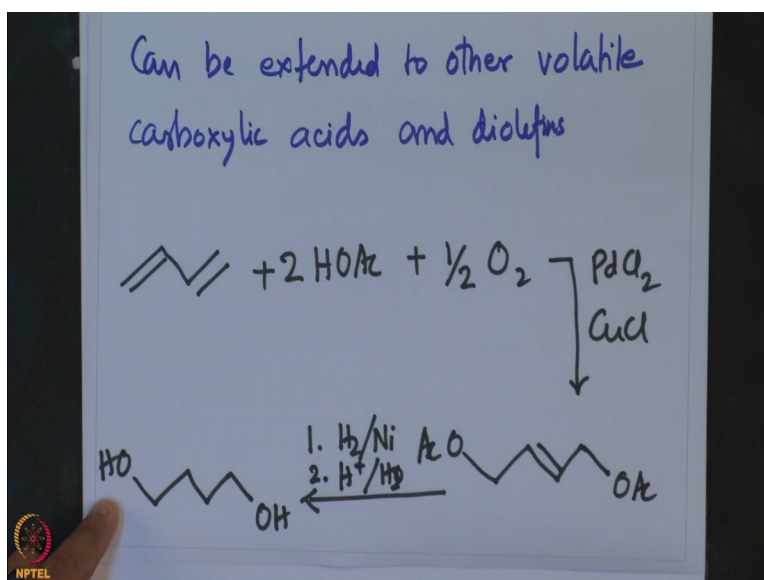 Can be extended to other volatile
carboxylic acids and diolefins
+ 2 HOAc + ½ O₂
PdCl₂
CuCl
1. H₂/Ni
2. H⁺/H₂O
AcO
OAc
HO
OH
NPTEL